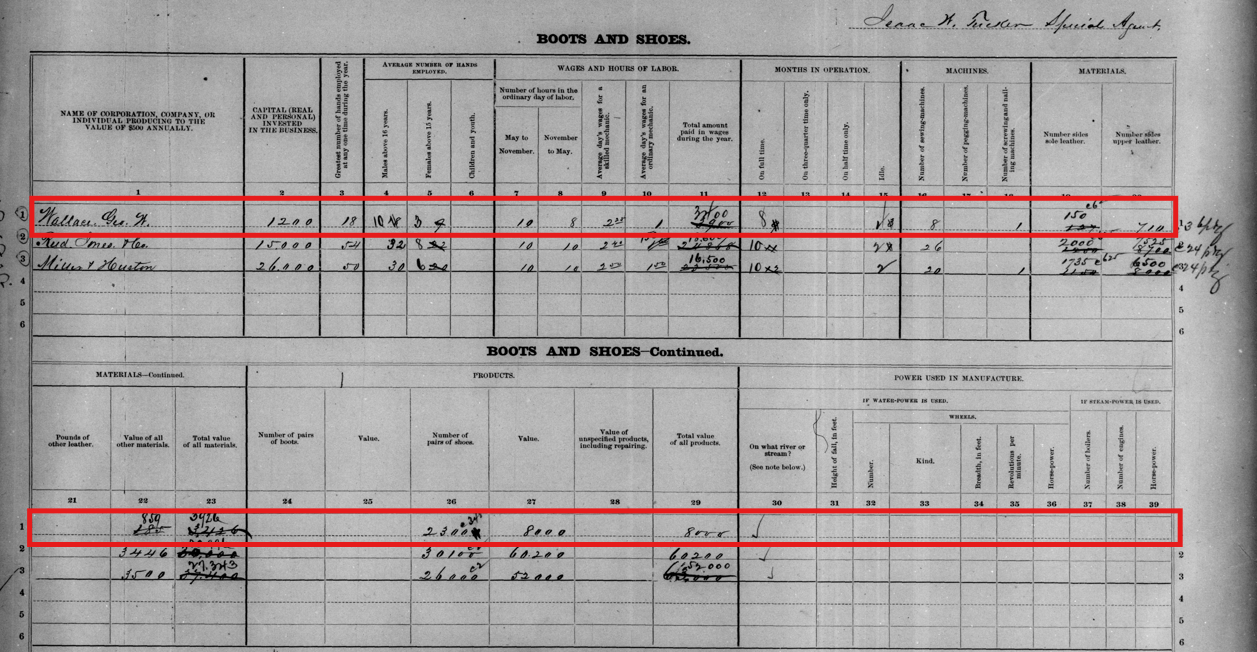 Isaac W. Tucker Special Agent.
BOOTS AND SHOES.
NAME OF CORPORATION, COMPANY, OR INDIVIDUAL PRODUCING TO THE VALUE OF $500 ANNUALLY.
CAPITAL (REAL AND PERSONAL) INVESTED IN THE BUSINESS.
Greatest number of hands employed at any one time during the year.
AVERAGE NUMBER OF HANDS EMPLOYED.
Males above 16 years.
Females above 15 years.
Children and youth.
WAGES AND HOURS OF LABOR.
Number of hours in the ordinary day of labor.
May to November.
November to May.
Average day's wages for a skilled mechanic.
Average day's wages for an ordinary mechanic.
Total amount paid in wages during the year.
MONTHS IN OPERATION.
On full time.
On three-quarter time only.
On half time only.
Idle.
MACHINES.
Number of sewing-machines.
Number of pegging-machines.
Number of screwing and nailing machines.
MATERIALS.
Number sides sole leather.
Number sides upper leather.
1 2 3 4 5 6 7 8 9 10 11 12 13 14 15 16 17 18
1 Wallace, Geo. W. 1200 18 10 3 10 8 2 25 1 8 8 1 150 710
2 Reed, Jones, & Co. 15,000 54 32 8 10 10 10 26 2000
3 Miller & Huston 26,000 50 30 6 10 10 16,500 10 2 20 1 1735 6500
4 4
5 5
6 6
BOOTS AND SHOES—Continued.
MATERIALS—Continued.
Pounds of other leather.
Value of all other materials.
Total value of all materials.
PRODUCTS.
Number of pairs of boots.
Value.
Number of pairs of shoes.
Value.
Value of unspecified products, including repairing.
Total value of all products.
POWER USED IN MANUFACTURE.
IF WATER-POWER IS USED.
On what river or stream?
(See note below.)
Height of fall, in feet.
WHEELS.
Number.
Kind.
Breadth, in feet.
Revolutions per minute.
Horse-power.
IF STEAM-POWER IS USED.
Number of boilers.
Number of engines.
Horse-power.
21 22 23 24 25 26 27 28 29 30 31 32 33 34 35 36 37 38 39
1 859 8000 8000
2 3446 60,200 60,200 2
3 3500 27,343 26000 52,000 52,000 3
4 4
5 5
6 6